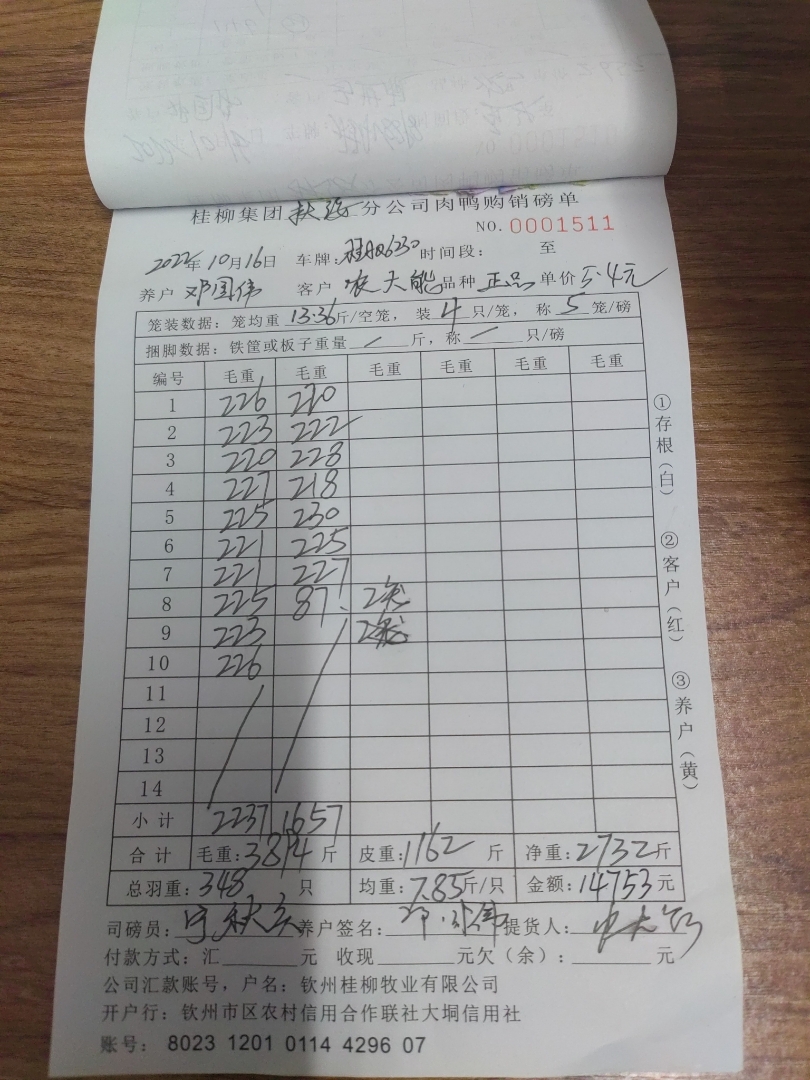 桂柳集团扶绥分公司肉鸭购销磅单
NO. 0001511
2022年10月16日 车牌: 桂R06230 时间段: 至
养户 邓国伟 客户 农大能 品种 正品 单价 5.4元
笼装数据: 笼均重 13.36 斤/空笼, 装 4 只/笼, 称 5 笼/磅
捆脚数据: 铁筐或板子重量 / 斤, 称 / 只/磅
编号 毛重 毛重 毛重 毛重 毛重 毛重
1 226 220
2 223 222
3 220 228
4 227 218
5 225 230
6 221 225
7 221 227
8 225 87. 2笼
9 223
10 226
11
12
13
14
小计 2237 1657
合计 毛重: 3894 斤 皮重: 1162 斤 净重: 2732 斤
总羽重: 348 只 均重: 7.85 斤/只 金额: 14753 元
司磅员: 养户签名: 提货人:
付款方式: 汇 元 收现 元 欠(余): 元
公司汇款账号, 户名: 钦州桂柳牧业有限公司
开户行: 钦州市区农村信用合作联社大垌信用社
账号: 8023 1201 0114 4296 07
①存根(白)
②客户(红)
③养户(黄)